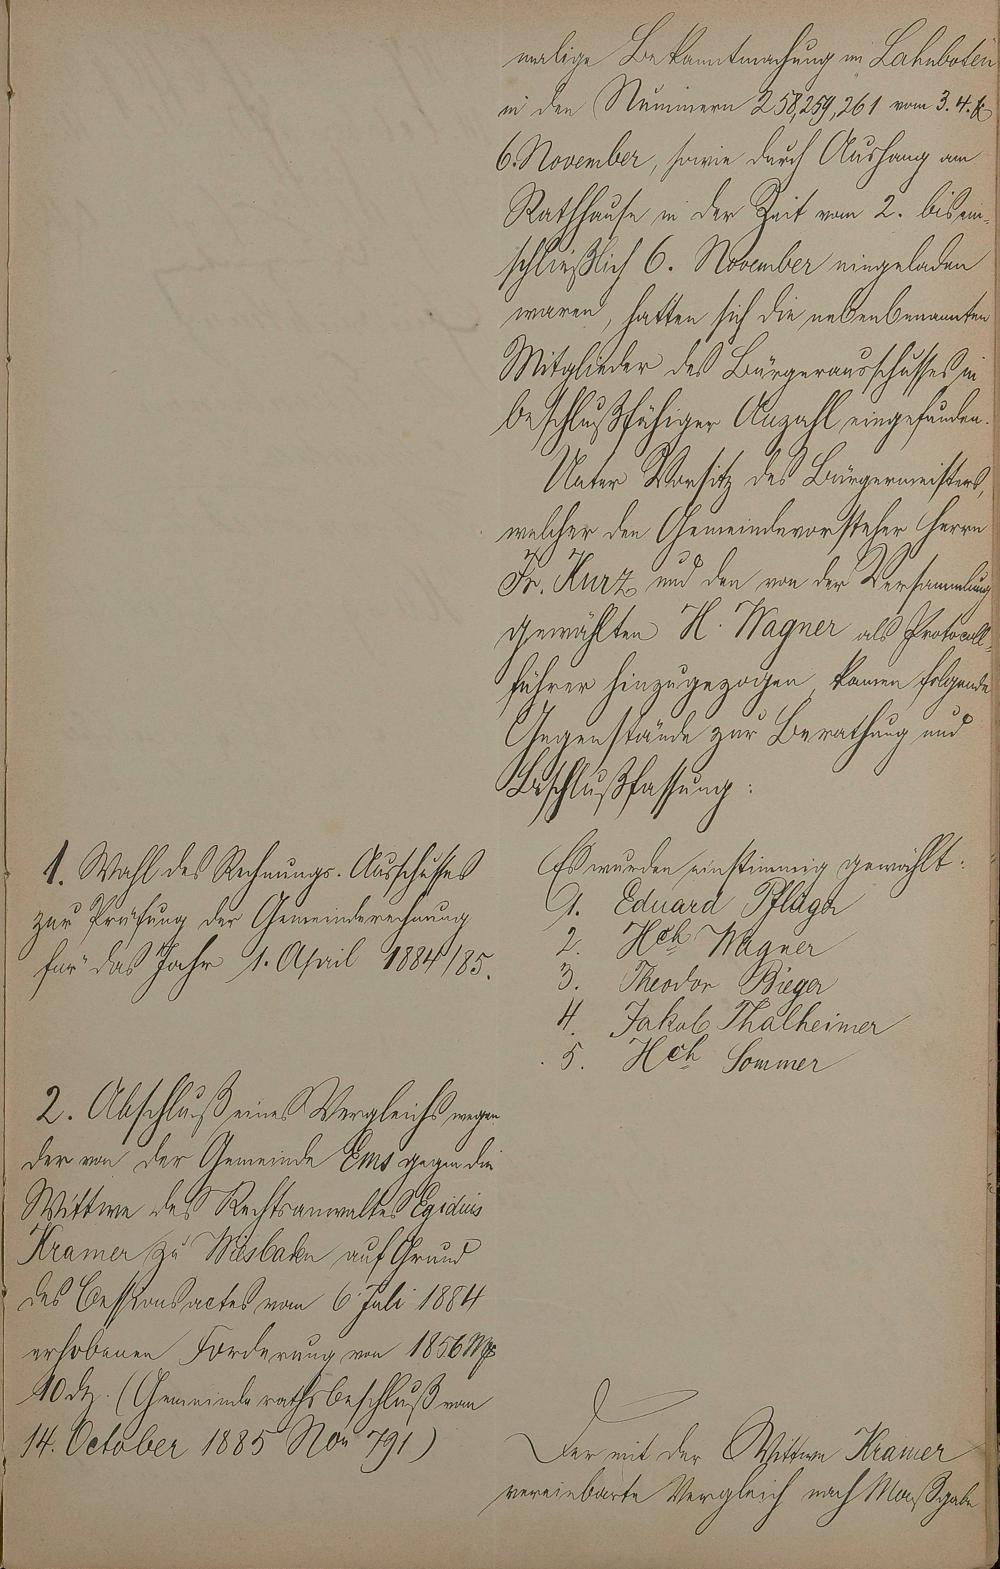 malige Bekanntmachung im Lahnboten
in den Nummern 258, 259, 261 vom 3. 4. &
6. November, sowie durch Aushang am
Rathhause in der Zeit vom 2. bis ein-
schließlich 6. November eingeladen
waren, hatten sich die nebenbenannten
Mitglieder des Bürgerausschusses in
beschlußfähiger Anzahl eingefunden.
Unter Vorsitz des Bürgermeisters,
welcher den Gemeindevorsteher Herrn
Fr. Kurz und den von der Versammlung
gewählten H. Wagner als Protocoll-
führer hinzugezogen, kamen folgende
Gegenstände zur Berathung und
Beschlußfassung:
1. Wahl des Rechnungs-Ausschusses
zur Prüfung der Gemeinderechnung
für das Jahr 1. April 1884/85.
Es wurden einstimmig gewählt:
1. Eduard Pflüger
2. Hch Wagner
3. Theodor Bieger
4. Jakob Thalheimer
5. Hch Sommer
2. Abschluß eines Vergleichs wegen
der von der Gemeinde Ems gegen die
Wittwe des Rechtsanwaltes Egidius
Kramer zu Wiesbaden auf Grund
des Cessionsactes vom 6 Juli 1884
erhobenen Forderung von 1856 M
10 d. (Gemeinderathsbeschluß vom
14. October 1885 No 791)
Der mit der Wittwe Kramer
vereinbarte Vergleich nach Maaßgabe